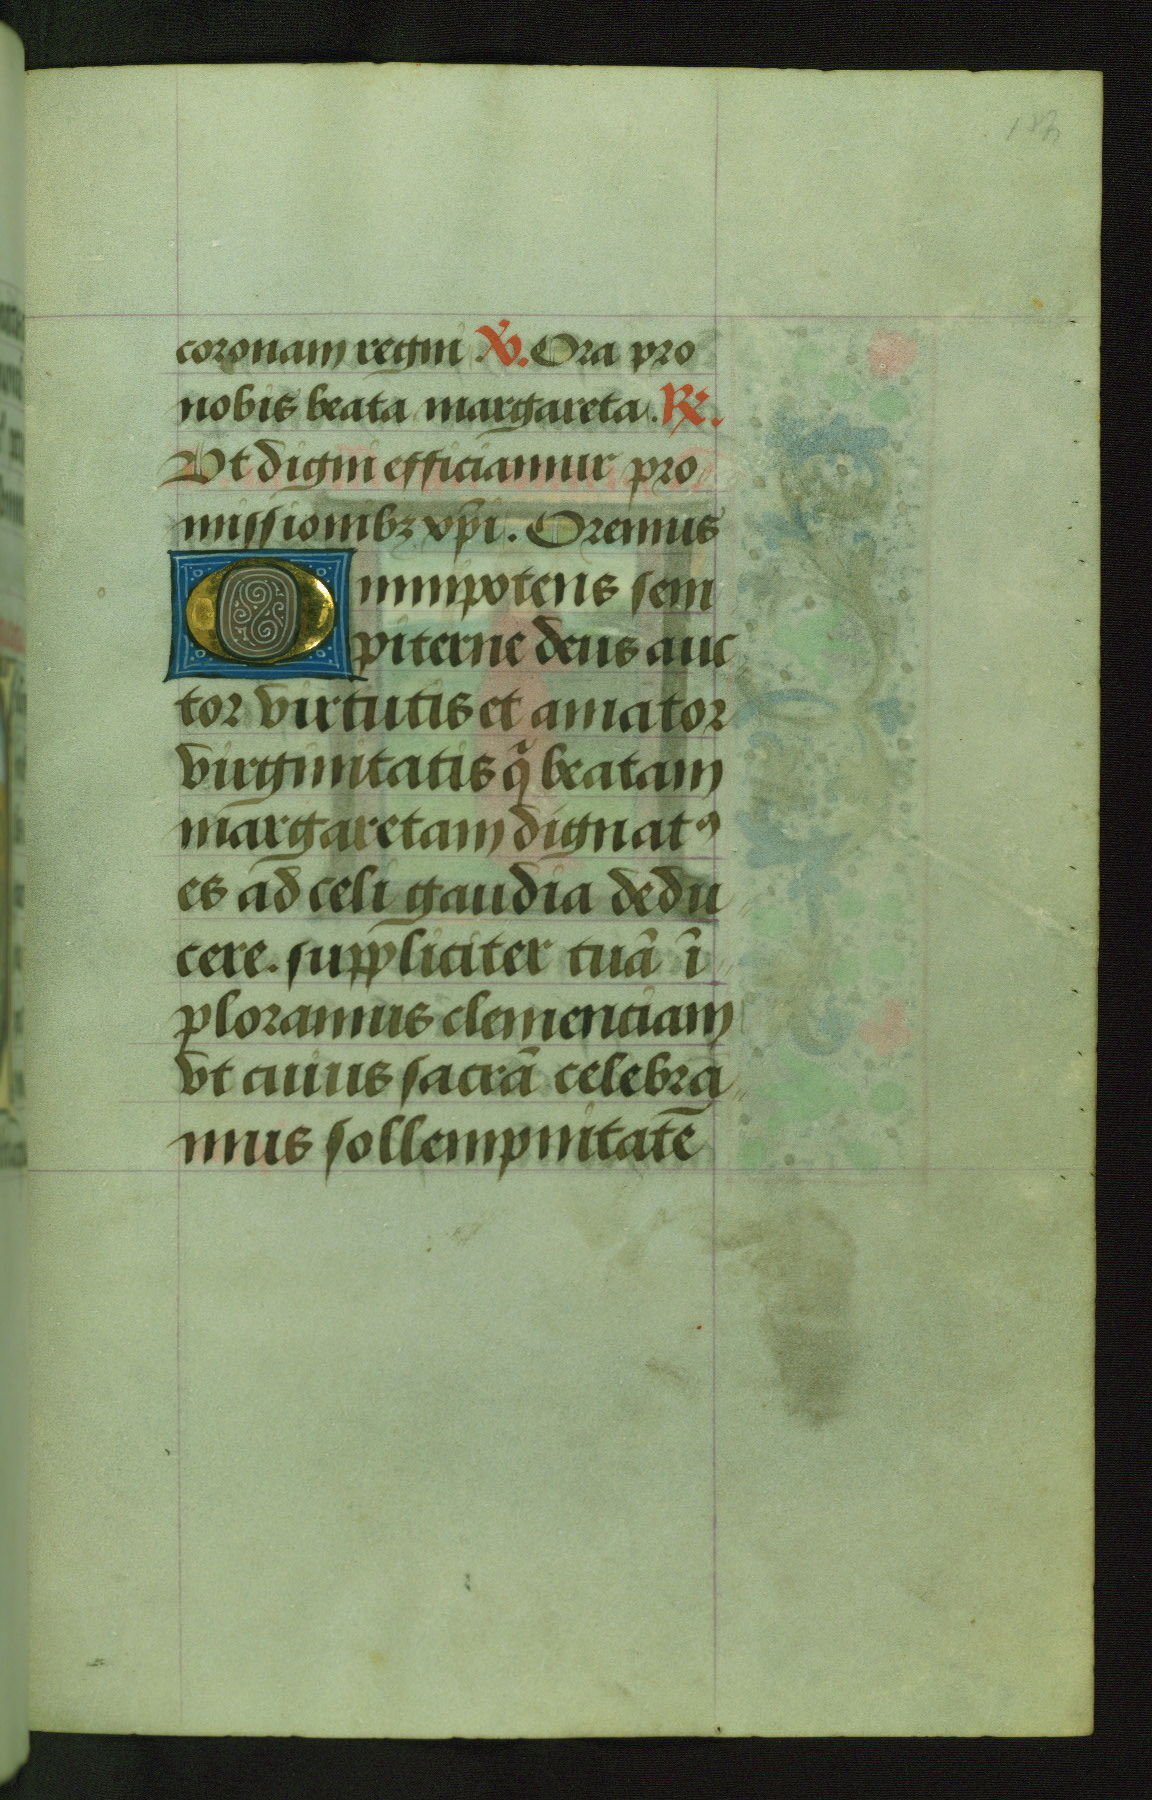 coronam regni V. Ora pro
nobis beata margareta. R.
Vt digni efficiamur pro
missionibꝫ xp̄i. Oremus
Omnipotens sem
piterne deus auc
tor virtutis et amator
virginitatis q̃ beatam
margaretam dignatꝰ
es ad celi gaudia dedu
cere. suppliciter tuā ī
ploramus clementiam
vt cuius sacrā celebra
mus sollempnitatē